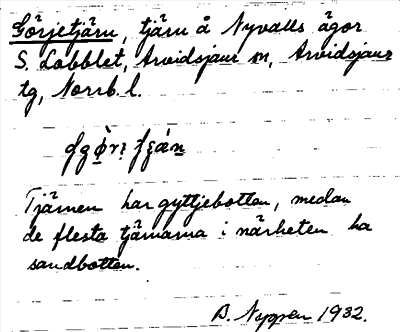 Görjetjärn, tjärn å Nyvalls ägor
S. Labblet, Arvidsjaur sn, Arvidsjaurs
tg, Norrb. l.
Tjärnen har gyttjebotten, medan
de flesta tjärnarna i närheten ha
sandbotten.
B. Nygren 1932.